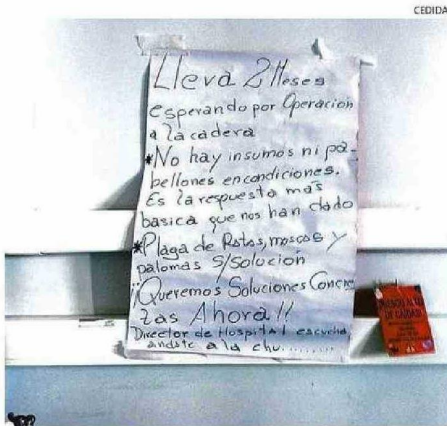 CEDIDA
Lleva 2 Meses
esperando por Operación
a la cadera
*No hay insumos ni pa-
bellones en condiciones.
Es la respuesta más
basica que nos han dado
*Plaga de Ratas, moscas y
palomas s/solución
¡Queremos Soluciones Concre
tas Ahora!!
Director de Hospital escucha,
andate a la chu.........
DE CAIDAS